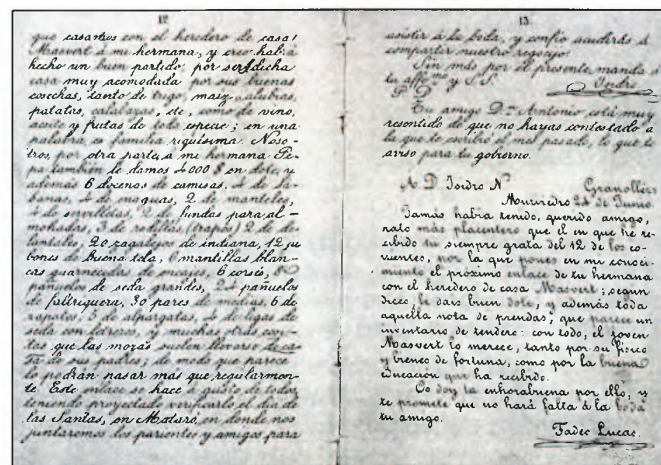 12
que casamos con el heredero de casa
Masvert á mi hermana, y creo habrá
hecho un buen partido, por ser dicha
casa muy acomodada por sus buenas
cosechas, tanto de trigo, maiz, alubias,
patatas, calabazas, etc, como de vino,
aceite y frutas de toda especie; en una
palabra, es familia riquísima. Noso-
tros, por otra parte, á mi hermana Pe-
pa tambien le damos 4000 $ en dote, y
además 6 docenas de camisas, 4 de sá-
banas, 4 de enaguas, 2 de manteles,
4 de servilletas, 2 de fundas para al-
mohadas, 3 de rodillas, (trapos) 2 de de-
lantales, 20 zagalejos de indiana, 12 ju-
bones de buena tela, 6 mantillas blan-
cas guarnecidas de encajes, 6 corsés,
pañuelos de seda grandes, 24 pañuelos
de faltriquera, 30 pares de medias, 6 de
zapatos, 3 de alpargatas, 4 de ligas de
seda con letreros, y muchas otras co-
sas que las mozas suelen llevarse de ca-
sa de sus padres, de modo que parece
lo podrán pasar mas que regularmen-
te. Este enlace se hace á gusto de todos,
teniendo proyectado verificarlo el dia de
las Santas, en Mataró, en donde nos
juntaremos los parientes y amigos para
13
asistir á la boda, y confio acudirás á
compartir nuestro regocijo.
Sin más por el presente, manda á
tu affmo y S. S.
P. D.
Tu amigo Dn Antonio está muy
resentido de que no hayas contestado á
la que te escribió el mes pasado, lo que te
aviso para tu gobierno.
A. D. Isidro N Granollérs
Monvredro 24 de Junio.
Jamás habia tenido, querido amigo,
rato más placentero que el en que he re-
cibido tu siempre grata del 12 de los co-
rrientes, por la que pones en mi conoci-
miento el próximo enlace de tu hermana
con el heredero de casa Masvert; segun
dices, le dais buen dote, y además toda
aquella nota de prendas, que parece un
inventario de tendero: con todo, el joven
Masvert lo merece, tanto por su físico
y bienes de fortuna, como por la buena
educacion que ha recibido.
Os doy la enhorabuena por ello, y
te promete que no hará falta á la boda
tu amigo.
Tadeo Lucas.